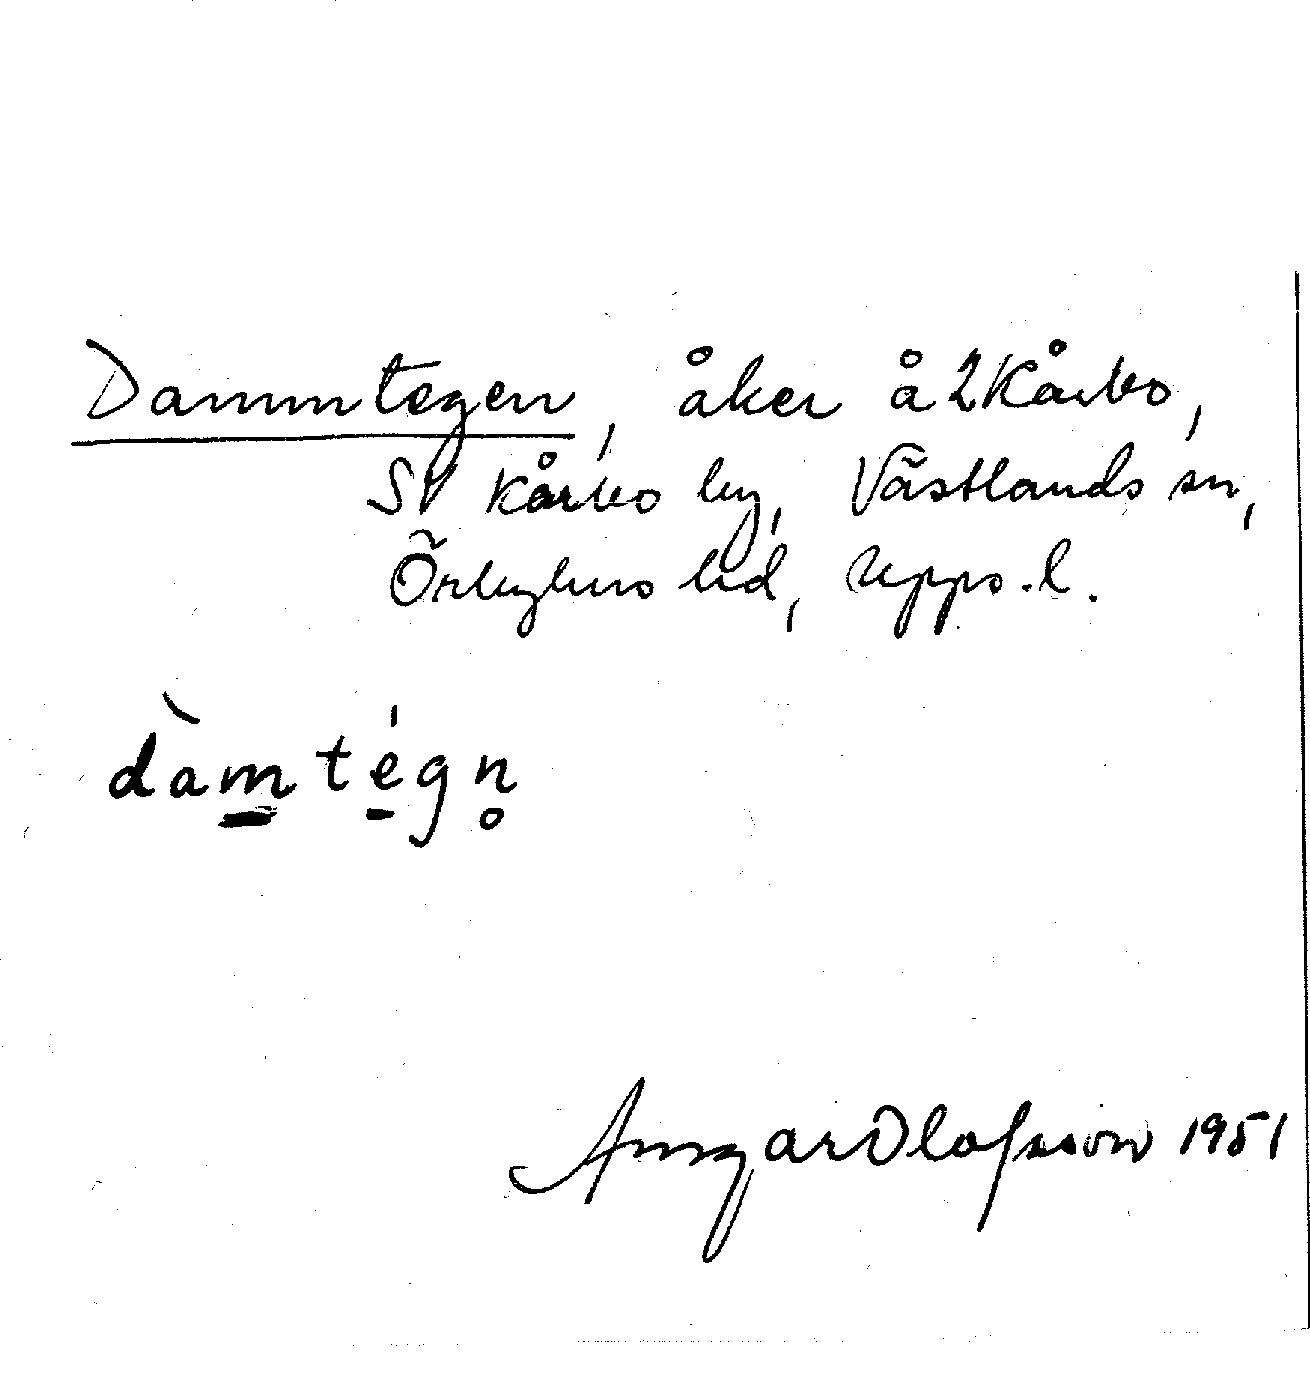 Dammtegen, åker å 2 Kårbo,
SV Kårbo by, Västlands sn,
Örbyhus hd, Upps. l.
dàm̱té̱gn̥
Ansgar Olofsson 1951